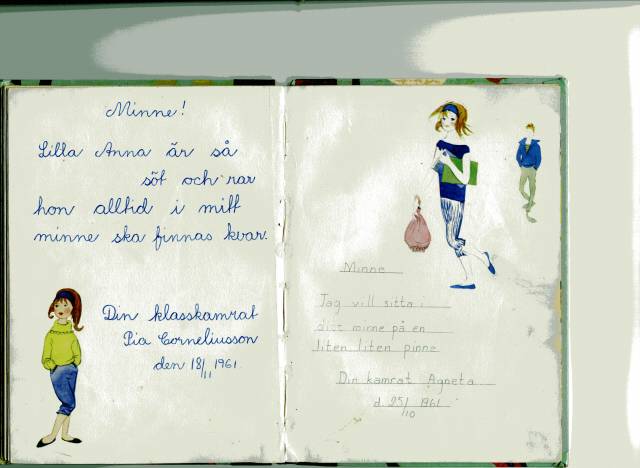 Minne!
Lilla Anna är så
söt och rar
hon alltid i mitt
minne ska finnas kvar.
Din klasskamrat
Pia Corneliusson
den 18/11 1961
Minne
Jag vill sitta i
ditt minne på en
liten liten pinne
Din kamrat Agneta
d. 25/10 1961